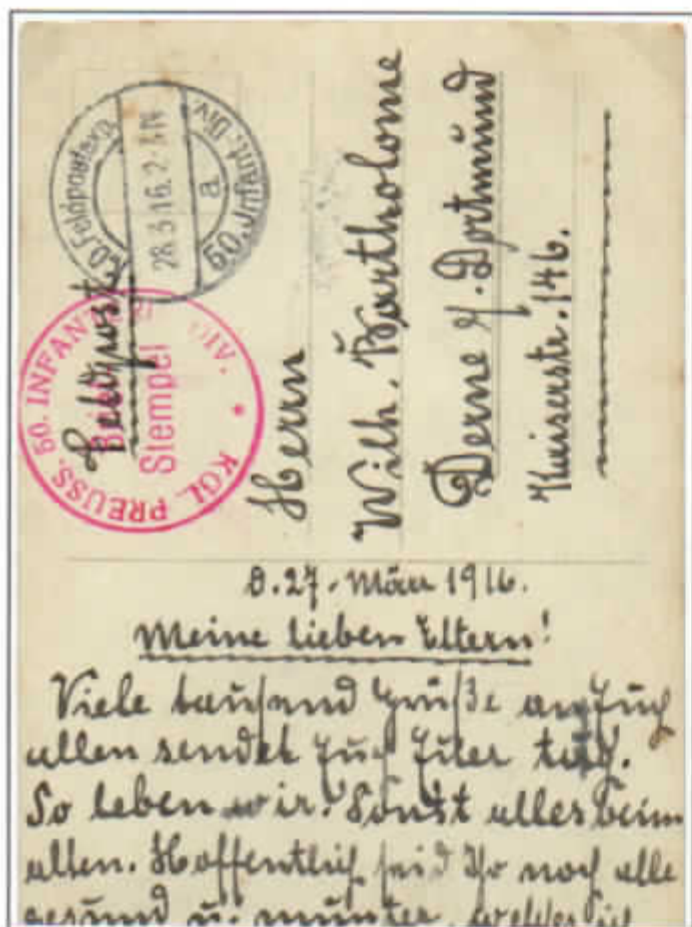 K.D. Feldpostexp.
28.3.16. 2-3N
a
50. Infant. Div.
KGL. PREUSS. 50. INFANTERIE DIV.
Brief
Stempel
Feldpost.
Herrn
Wilh. Bartholome
Derne b. Dortmund
Kaiserstr. 146.
d. 27. März 1916.
Meine lieben Eltern!
Viele tausend Grüße an Euch
allen sendet Euch Euer
So leben wir. Sonst alles beim
alten. Hoffentlich seid Ihr noch alle
gesund u. munter, welches ich